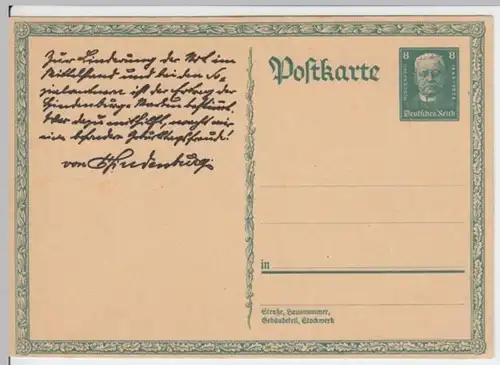 Zur Linderung der Not im
Mittelstand und bei den So-
zialrentnern ist der Ertrag der
Hindenburg-Spenden bestimmt.
Wer dazu mithilft, macht mir
eine besondere Geburtstagsfreude!
von Hindenburg.
Postkarte
8 8
Deutsches Reich
in
Straße, Hausnummer,
Gebäudeteil, Stockwerk